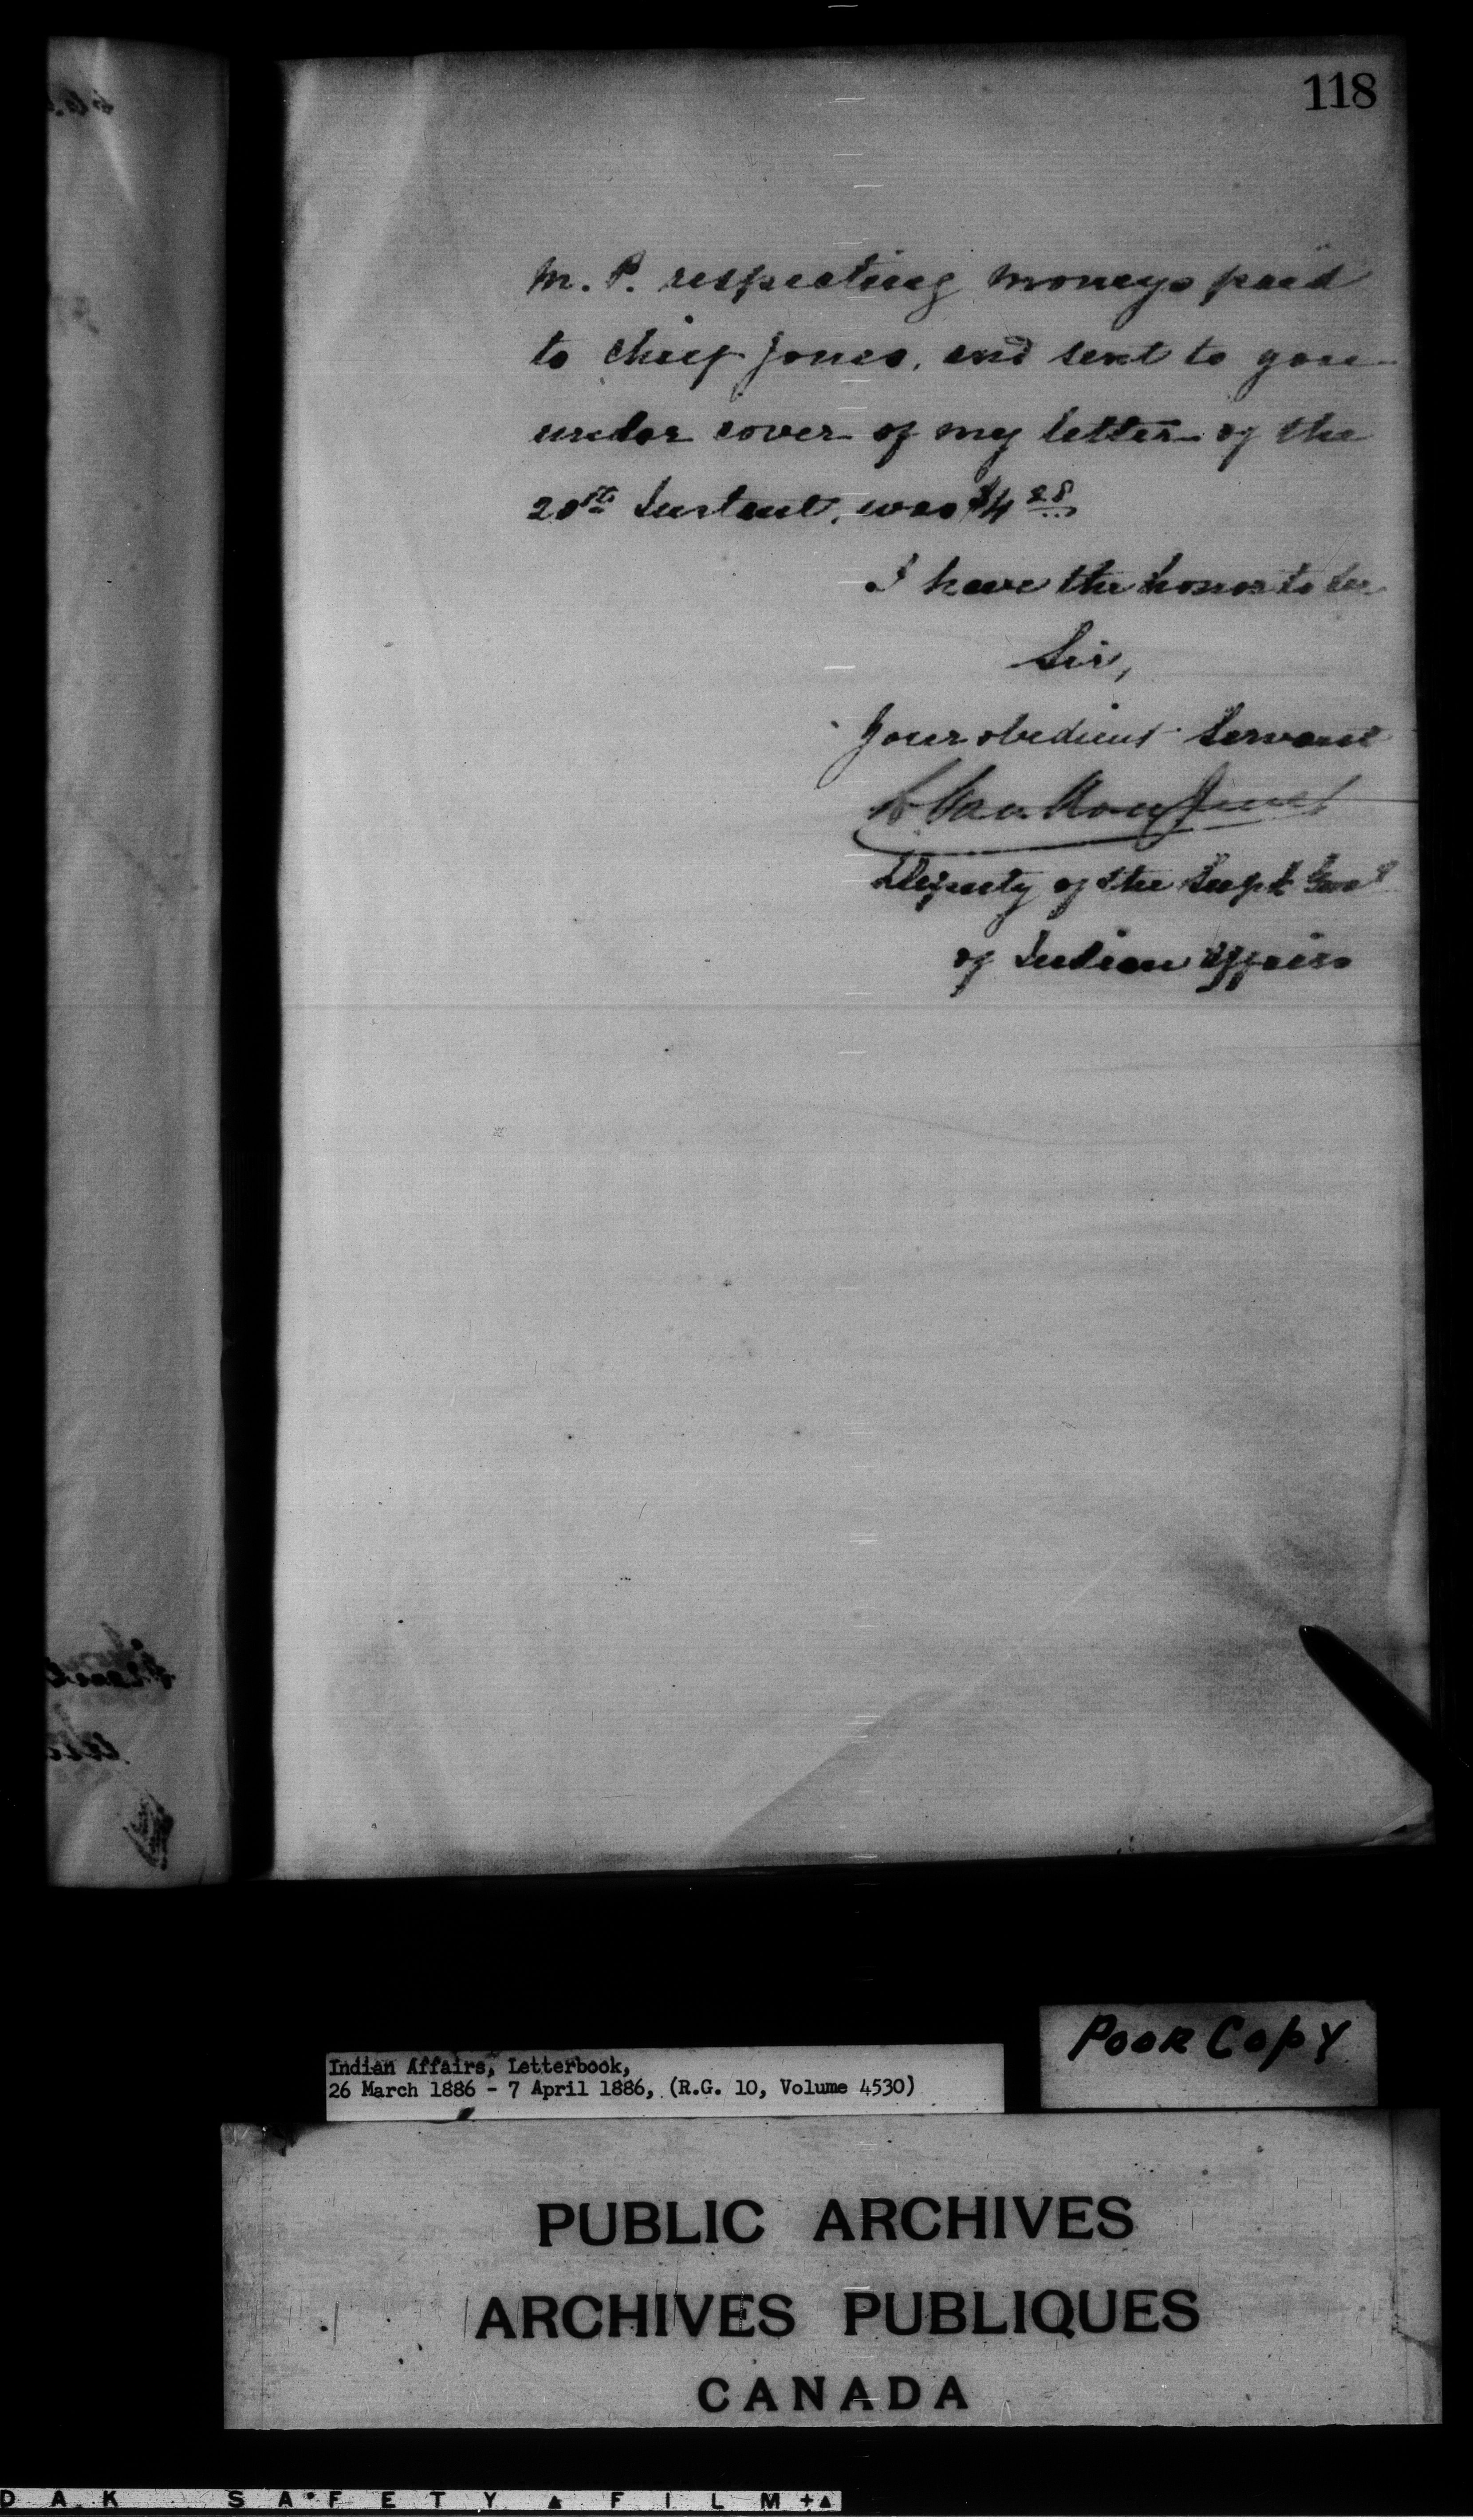 118
M. P. respecting moneys paid
to Chief Jones, and sent to you
under cover of my letter of the
20th Instant, was $4 28
I have the honor to be
Sir,
Your obedient Servant
L. VanKoughnet
Deputy of the Supt. Genl
of Indian Affairs
POOR COPY
Indian Affairs, Letterbook,
26 March 1886 - 7 April 1886, (R.G. 10, Volume 4530)
PUBLIC ARCHIVES
ARCHIVES PUBLIQUES
CANADA
DAK SAFETY FILM